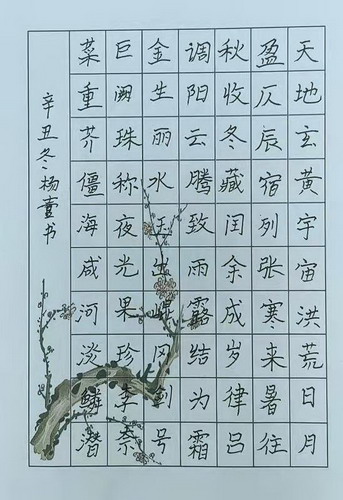 天地玄黄宇宙洪荒日月
盈仄辰宿列张寒来暑往
秋收冬藏闰余成岁律吕
调阳云腾致雨露结为霜
金生丽水玉出崐冈剑号
巨阙珠称夜光果珍李奈
菜重芥僵海咸河淡鳞潜
辛丑冬杨壹书